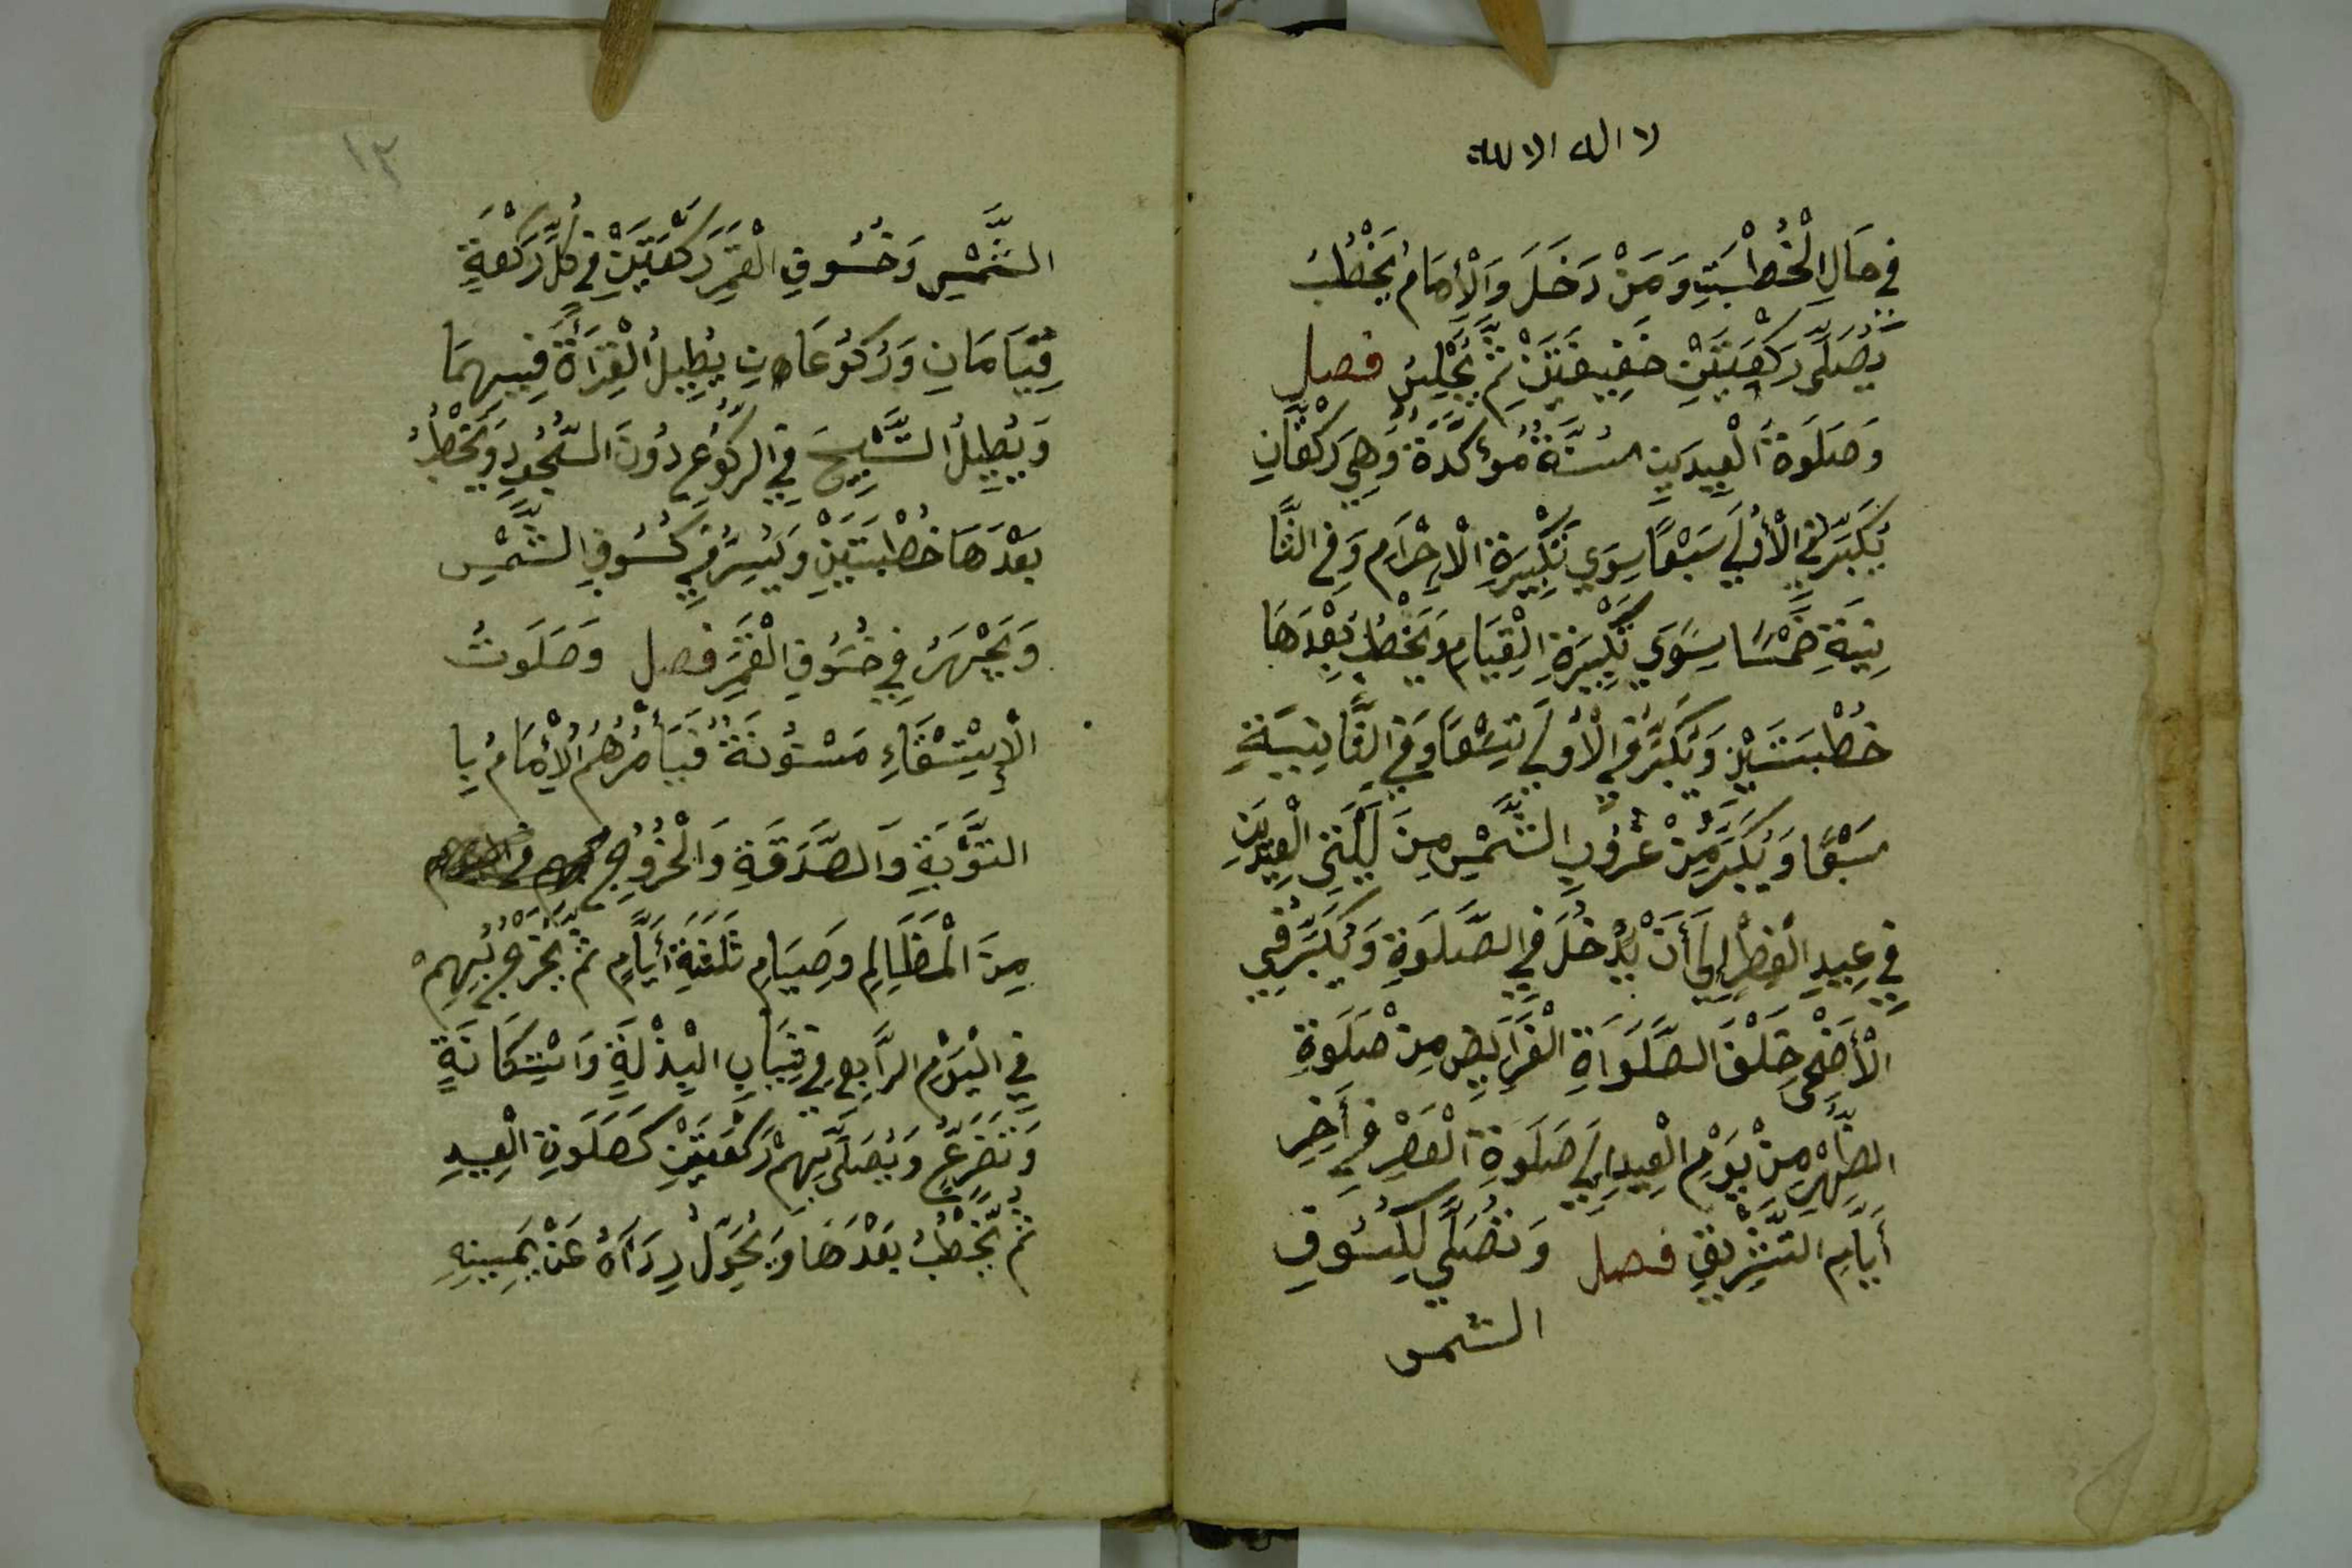 لا اله الا لله
في حَالِ الْخُطْبَتِ وَمَنْ دَخَلَ وَالْاِمَامُ يَخْطُبُ
يُصَلِّي رَكْعَتَيْنِ خَفِيفَتَيْنِ ثُمَّ يَجْلِسُ فصل
وَصَلَوةُ الْعِيدَيْنِ سُنَّةٌ مُؤَكَّدَةٌ وَهِيَ رَكْعَتَانِ
يُكَبِّرُ فِي الْأُولَي سَبْعًا سِوَي تَكْبِيرَةِ الْاِحْرَامِ وَفِي الثَّا
نِيَةِ خَمْسًا سِوَي تَكْبِيرَةِ الْقِيَامِ وَيَخْطُبُ بَعْدَهَا
خُطْبَتَيْنِ وَيُكَبِّرُ فِي الْأُولَي تِسْعًا وَفِي الثَّانِيَةِ
سَبْعًا وَيُكَبِّرُ مِنْ غُرُوبِ الشَّمْسِ مِنْ لَيْلَتَيِ الْعِيدَيْنِ
فِي عِيدِ الْفِطْرِ اِلَي أَنْ يَدْخُلَ فِي الصَّلَوةِ وَيُكَبِّرُ فِي
الْأَضْحَى خَلْفَ الصَّلَوَاةِ الْفَرَايِضِ مِنْ صَلَوةِ
الظُّهْرِ مِنْ يَوْمِ الْعِيدِ اِلَي صَلَوةِ الْعَصْرِ فِي أَخِرِ
أَيَّامِ التَّشْرِيقِ فصل وَتُصَلَّي لِكُسُوفِ
الشمس
١٣
الشَّمْسِ وَخُسُوفِ الْقَمَرِ رَكْعَتَيْنِ فِي كُلِّ رَكْعَةٍ
قِيَامَانِ وَرُكُوعَانِ يُطِيلُ الْقِرَأَةَ فِيهِمَا
وَيُطِيلُ التَّسْبِيحَ فِي الرُّكُوعِ دُونَ السُّجُودِ وَيَخْطُبُ
بَعْدَهَا خُطْبَتَيْنِ وَيُسِرُّ فِي كُسُوفِ الشَّمْسِ
وَيَجْهَرُ فِي خُسُوفِ الْقَمَرِ فصل وَصَلَوتُ
الْاِسْتِسْقَاءِ مَسْنُونَةٌ فَيَأْمُرُهُمُ الْاِمَامُ بِا
التَّوْبَةِ وَالصَّدَقَةِ وَالْخُرُوجِ
مِنَ الْمَظَالِمِ وَصِيَامِ ثَلَثَةِ أَيَّامٍ ثُمَّ يَخْرُجُ بِهِمْ
فِي الْيَوْمِ الرَّابِعِ فِي ثِيَابِ الْبِذْلَةِ وَاسْتِكَانَةٍ
وَتَضَرُّعٍ وَيُصَلِّي بِهِمْ رَكْعَتَيْنِ كَصَلَوةِ الْعِيدِ
ثُمَّ يَخْطُبُ بَعْدَهَا وَيُحَوِّلُ رِدَاَهُ عَنْ يَمِينِهِ